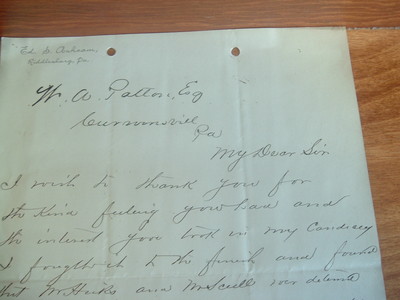 Ed. S.
Pa.
W. A. Patton, Esq
Curwensvill
Pa
My Dear Sir
I wish to thank you for
the kind feeling you had and
the interest you took in my Candicy
I fought it to the finish and found
that Mr and Mr Scull